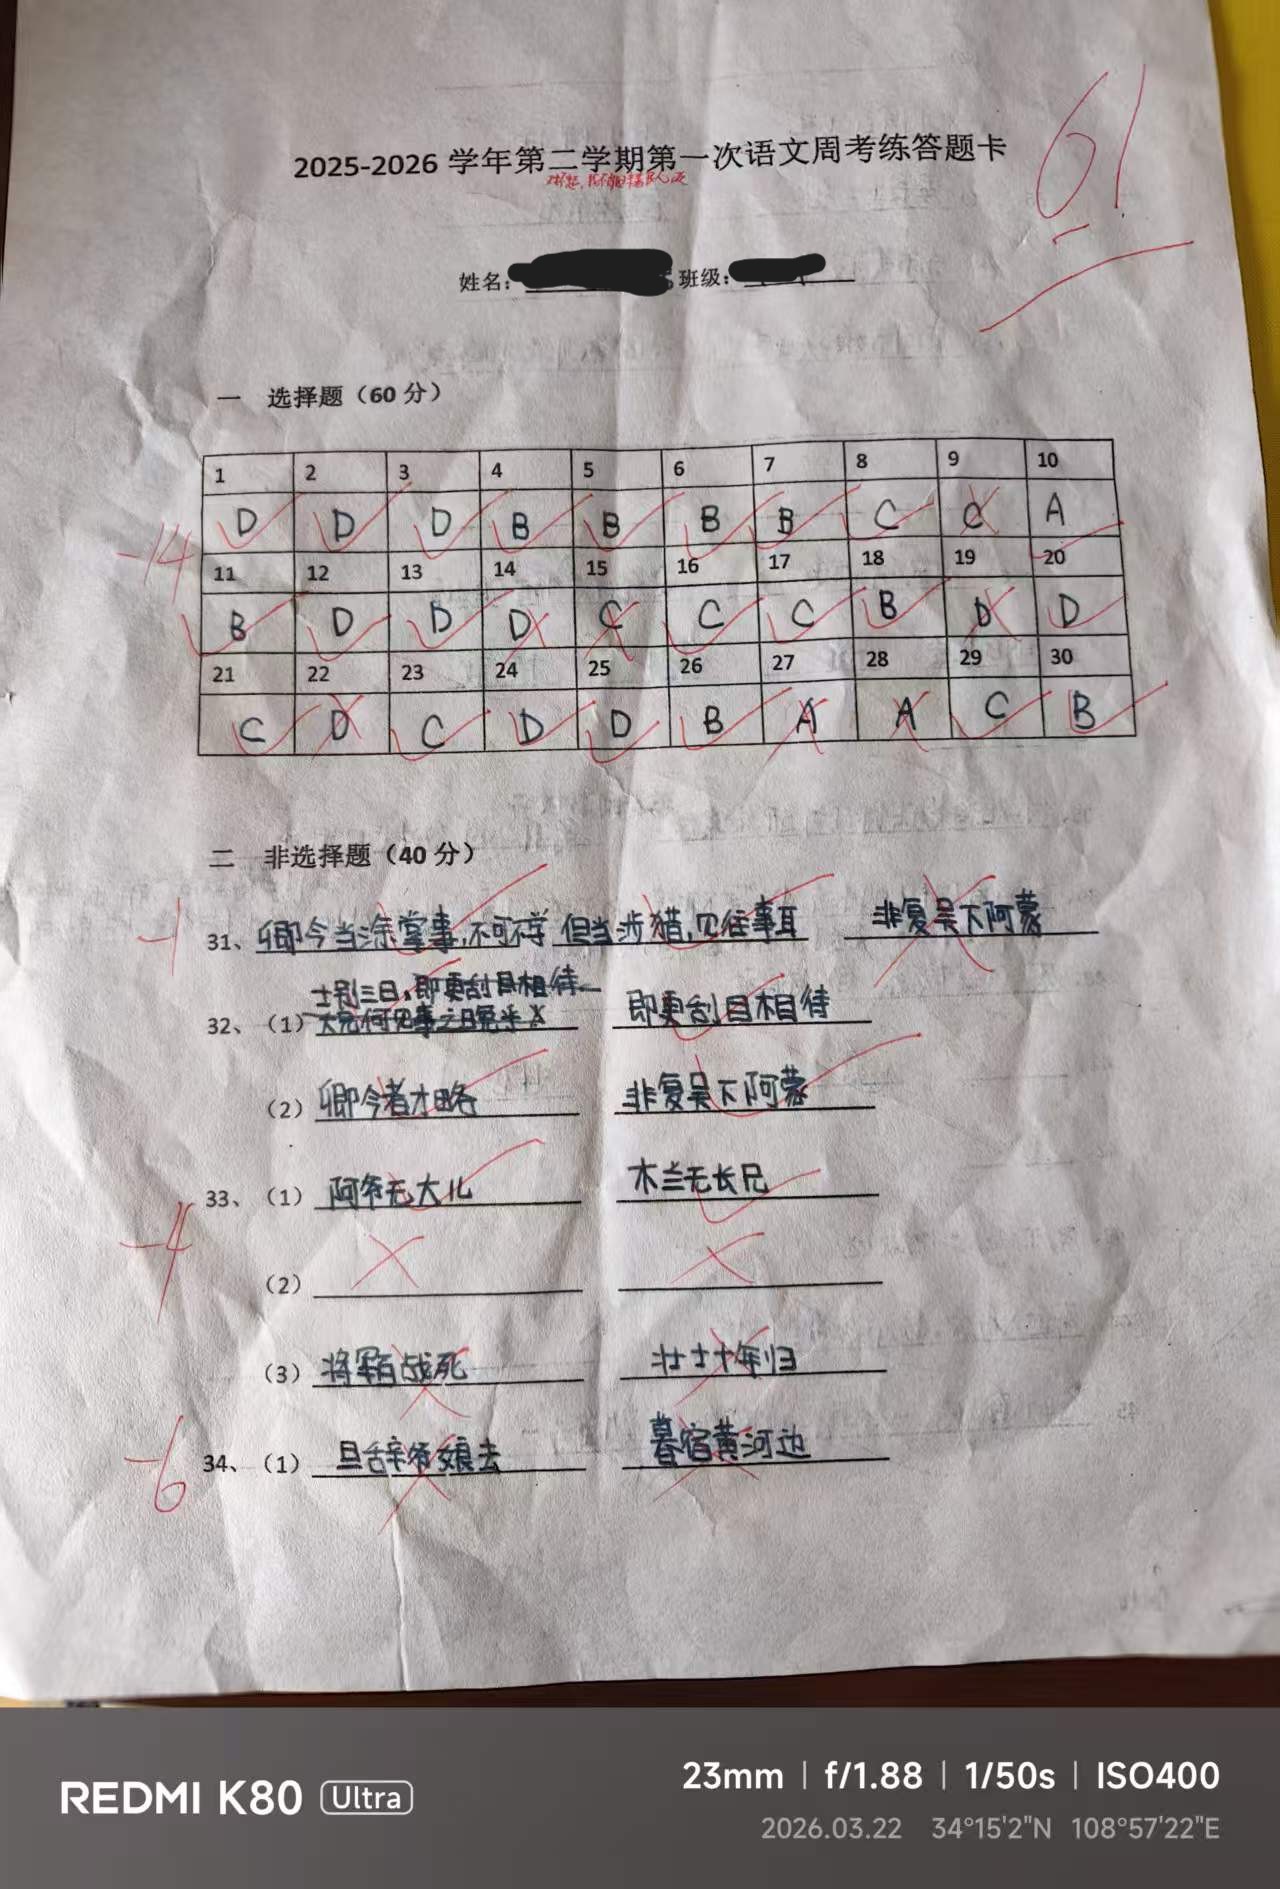 61
2025-2026 学年第二学期第一次语文周考练答题卡
姓名： 班级：
一 选择题（60 分）
1 2 3 4 5 6 7 8 9 10
D D D B B B B C C A
-14
11 12 13 14 15 16 17 18 19 20
B D D D C C C B D D
21 22 23 24 25 26 27 28 29 30
C D C D D B A A C B
二 非选择题（40 分）
-1
31、卿今当涂掌事,不可不学 但当涉猎,见往事耳 非复吴下阿蒙
士别三日,即更刮目相待
32、（1）大兄何见事之晚乎 即更刮目相待
（2）卿今者才略 非复吴下阿蒙
33、（1）阿爷无大儿 木兰无长兄
-4
（2）
（3）将军百战死 壮士十年归
-6
34、（1）旦辞爷娘去 暮宿黄河边
REDMI K80 Ultra
23mm | f/1.88 | 1/50s | ISO400
2026.03.22 34°15'2"N 108°57'22"E